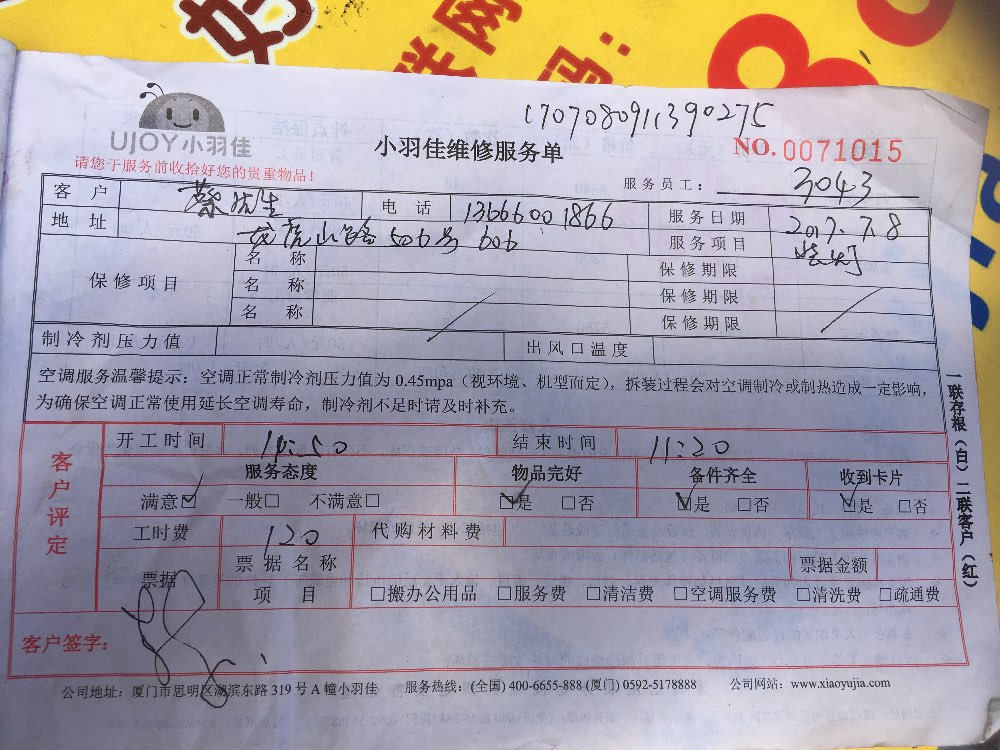 170708091390275
UJOY小羽佳
小羽佳维修服务单
NO.0071015
请您于服务前收拾好您的贵重物品!
服务员工: 3043
客户 蔡先生 电话 13666001866 服务日期 2017.7.8
地址 龙虎山路506号 606 服务项目 装灯
保修项目 名称 保修期限
名称 保修期限
名称 保修期限
制冷剂压力值 出风口温度
空调服务温馨提示:空调正常制冷剂压力值为 0.45mpa(视环境、机型而定),拆装过程会对空调制冷或制热造成一定影响,
为确保空调正常使用延长空调寿命,制冷剂不足时请及时补充。
客户评定
开工时间 10:50 结束时间 11:20
服务态度 物品完好 备件齐全 收到卡片
满意☑ 一般□ 不满意□ ☑是 □否 ☑是 □否 ☑是 □否
工时费 120 代购材料费
票据 票据名称 票据金额
项目 □搬办公用品 □服务费 □清洁费 □空调服务费 □清洗费 □疏通费
客户签字:
公司地址:厦门市思明区湖滨东路 319 号 A 幢小羽佳 服务热线:(全国) 400-6655-888 (厦门) 0592-5178888 公司网站:www.xiaoyujia.com
一联存根(白) 二联客户(红)